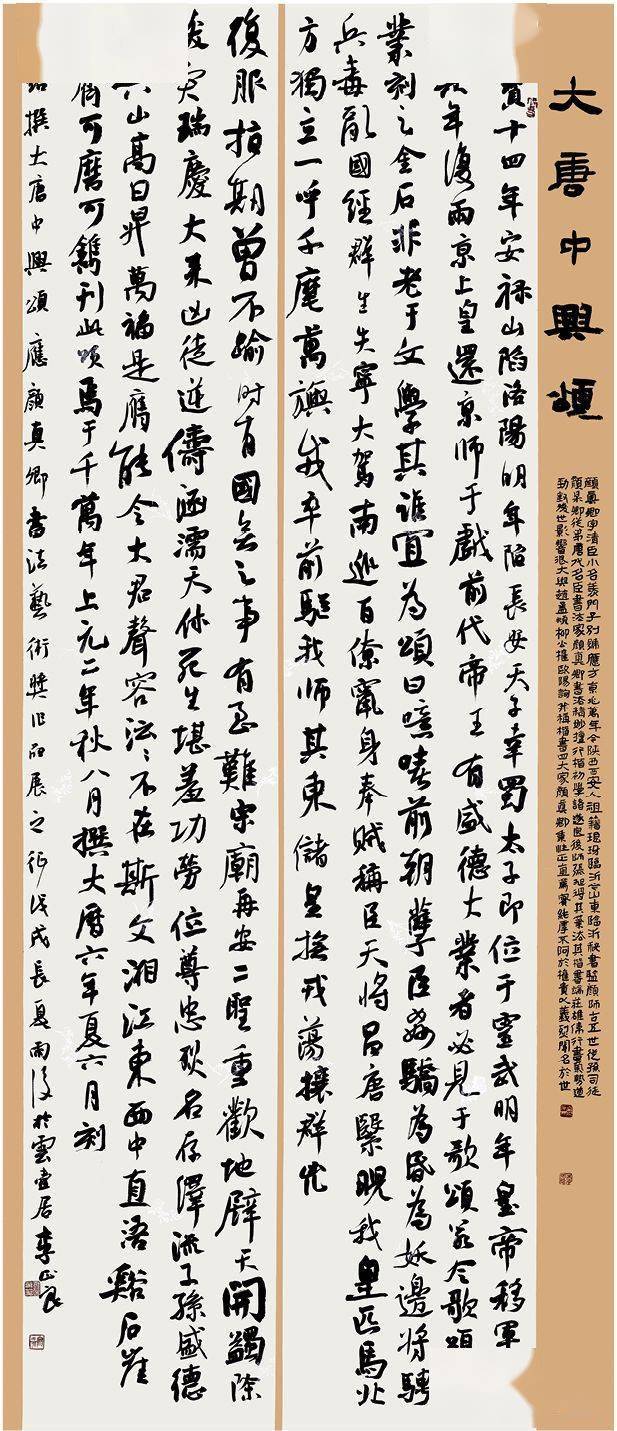 大唐中興頌
顏真卿字清臣小名羨門子別號應方京兆萬年令陝西西安人祖籍琅玡臨沂今山東臨沂秘書監顏師古五世從孫司徒
顏杲卿從弟唐代名臣書法家顏真卿書法精妙擅行楷初學褚遂良後師張旭得其筆法其楷書端莊雄偉行書氣勢遒
勁對後世影響很大與趙孟頫柳公權歐陽詢并稱楷書四大家顏真卿秉性正直篤實純厚不阿於權貴以義烈聞名於世
寶十四年安祿山陷洛陽明年陷長安天子幸蜀太子即位于靈武明年皇帝移軍
年復兩京上皇還京師于戲前代帝王有盛德大業者必見于歌頌若令歌頌
業刻之金石非老于文學其誰宜為頌曰噫嘻前朝孽臣姦驕為昏為妖邊將騁
兵毒亂國經群生失寧大駕南巡百僚竄身奉賊稱臣天將昌唐繄睨我皇匹馬北
方獨立一呼千麾萬旟戎卒前驅我師其東儲皇撫戎蕩攘群兇
復服指期曾不踰時有國無之事有至難宗廟再安二聖重歡地闢天開蠲除
災瑞慶大來凶徒逆儔涵濡天休死生堪羞功勞位尊忠烈名存澤流子孫盛德
山高日昇萬福是膺能令大君聲容沄沄不在斯文湘江東西中直浯谿石崖
可磨可鐫刊此頌焉于千萬年上元二年秋八月撰大曆六年夏六月刻
撰大唐中興頌應顏真卿書法藝術獎作品展之徵戊戌長夏雨後於雲壹居李正良